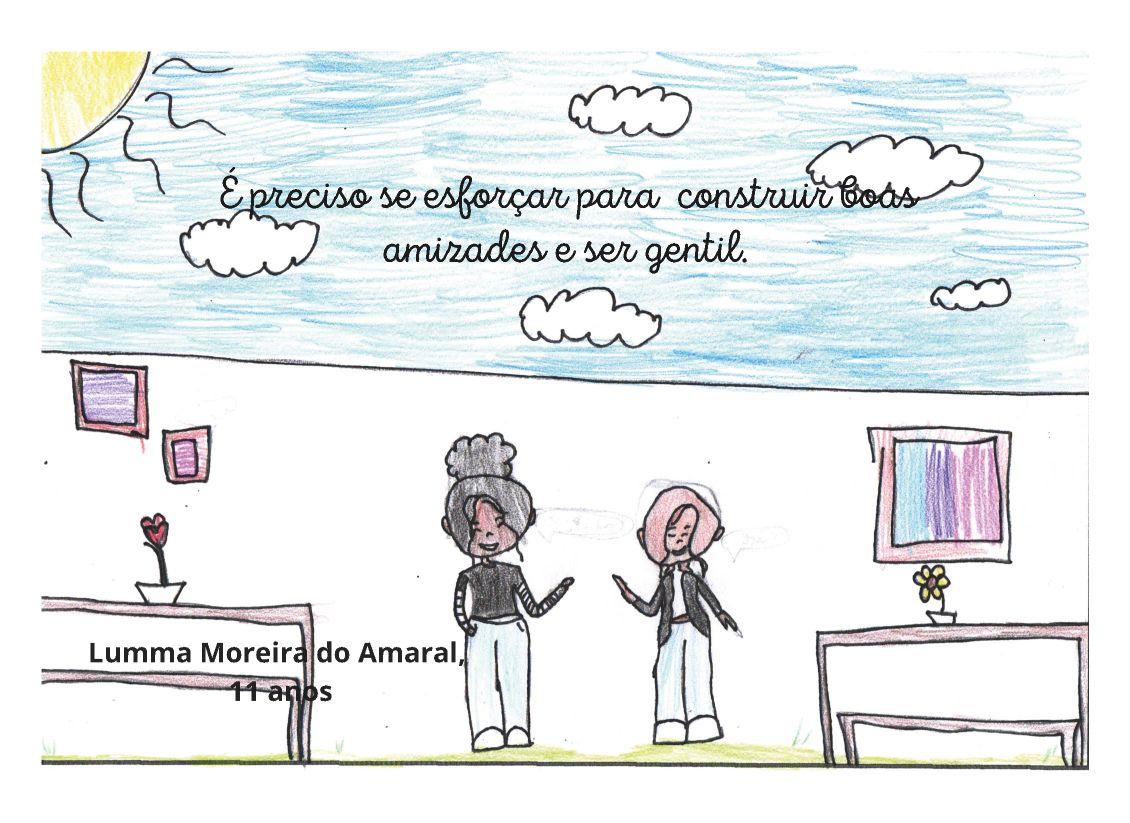 É preciso se esforçar para construir boas
amizades e ser gentil.
Lumma Moreira do Amaral,
11 anos